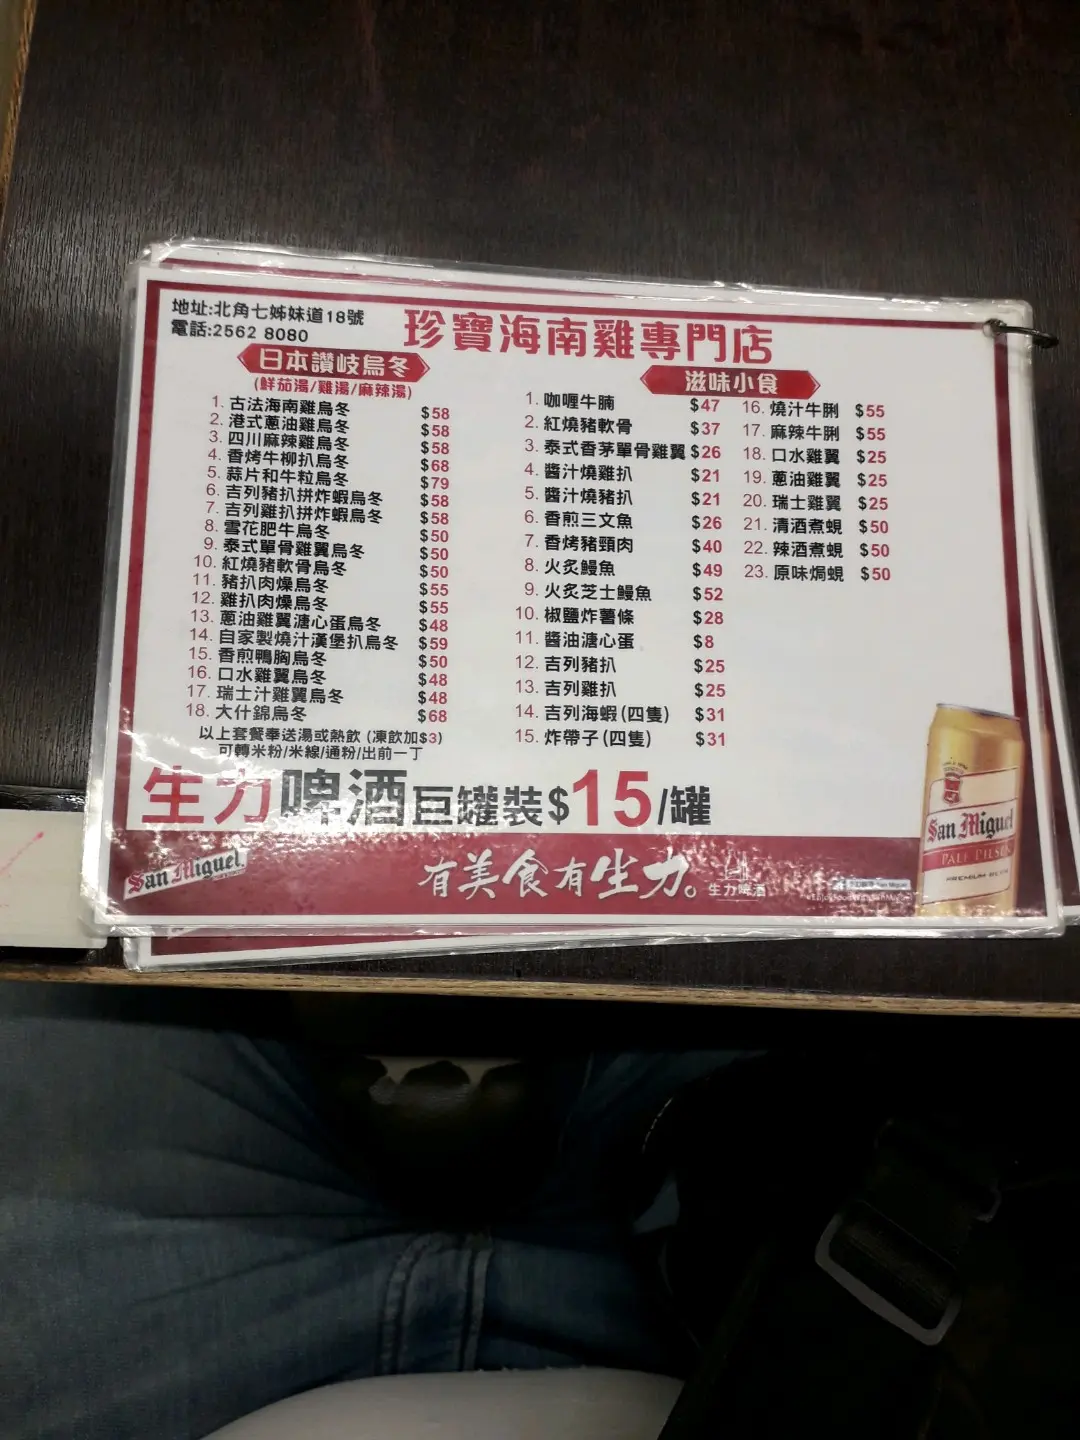 地址:北角七姊妹道18號
電話:2562 8080
珍寶海南雞專門店
日本讚岐烏冬
(鮮茄湯/雞湯/麻辣湯)
1. 古法海南雞烏冬 $58
2. 港式蔥油雞烏冬 $58
3. 四川麻辣雞烏冬 $58
4. 香烤牛柳扒烏冬 $68
5. 蒜片和牛粒烏冬 $79
6. 吉列豬扒拼炸蝦烏冬 $58
7. 吉列雞扒拼炸蝦烏冬 $58
8. 雪花肥牛烏冬 $50
9. 泰式單骨雞翼烏冬 $50
10. 紅燒豬軟骨烏冬 $50
11. 豬扒肉燥烏冬 $55
12. 雞扒肉燥烏冬 $55
13. 蔥油雞翼溏心蛋烏冬 $48
14. 自家製燒汁漢堡扒烏冬 $59
15. 香煎鴨胸烏冬 $50
16. 口水雞翼烏冬 $48
17. 瑞士汁雞翼烏冬 $48
18. 大什錦烏冬 $68
以上套餐奉送湯或熱飲 (凍飲加$3)
可轉米粉/米線/通粉/出前一丁
滋味小食
1. 咖喱牛腩 $47
2. 紅燒豬軟骨 $37
3. 泰式香茅單骨雞翼 $26
4. 醬汁燒雞扒 $21
5. 醬汁燒豬扒 $21
6. 香煎三文魚 $26
7. 香烤豬頸肉 $40
8. 火炙鰻魚 $49
9. 火炙芝士鰻魚 $52
10. 椒鹽炸薯條 $28
11. 醬油溏心蛋 $8
12. 吉列豬扒 $25
13. 吉列雞扒 $25
14. 吉列海蝦 (四隻) $31
15. 炸帶子 (四隻) $31
16. 燒汁牛脷 $55
17. 麻辣牛脷 $55
18. 口水雞翼 $25
19. 蔥油雞翼 $25
20. 瑞士雞翼 $25
21. 清酒煮蜆 $50
22. 辣酒煮蜆 $50
23. 原味焗蜆 $50
生力啤酒巨罐裝$15/罐
San Miguel
有美食有生力。
生力啤酒
San Miguel
PALE PILSEN
PREMIUM BEER